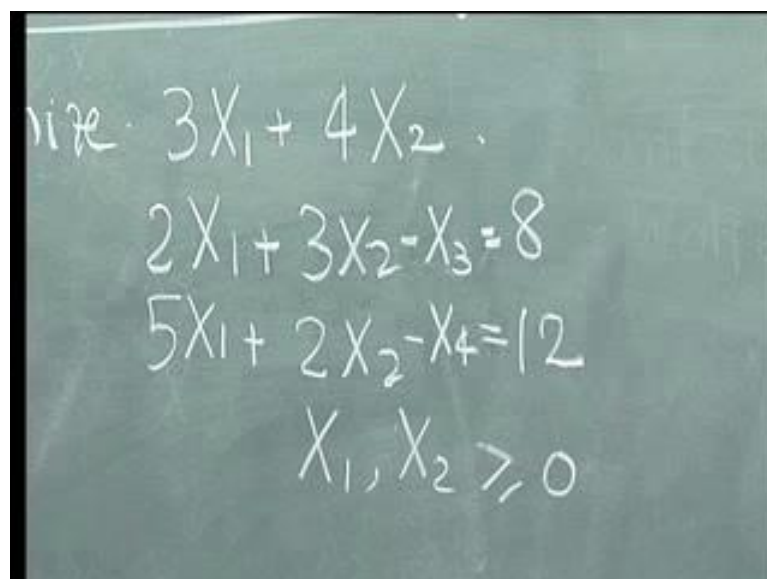 3X₁ + 4X₂.
2X₁ + 3X₂ - X₃ = 8
5X₁ + 2X₂ - X₄ = 12
X₁, X₂ ≥ 0